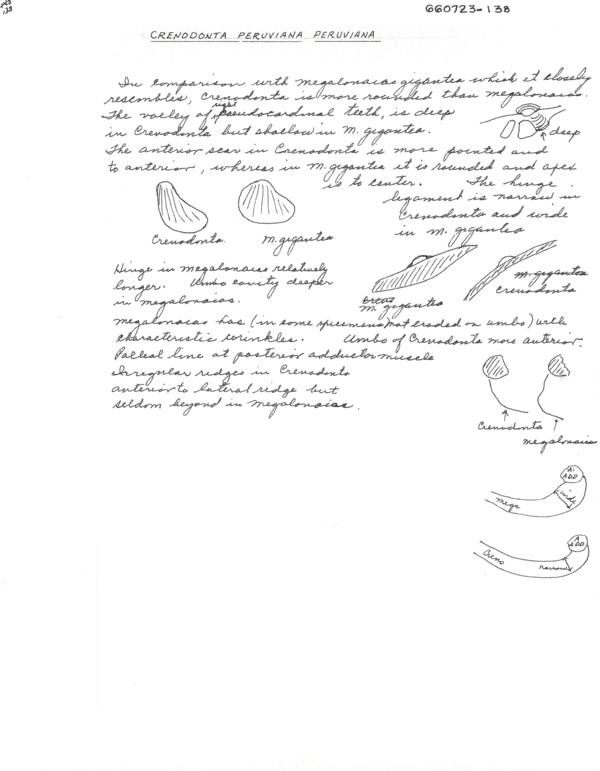 660723-138
CRENODONTA PERUVIANA PERUVIANA
In comparison with megalonaias gigantea which it closely
resembles, Crenodonta is more rounded than megalonaias.
The valley of right pseudocardinal teeth, is deep
in Crenodonta but shallow in M. gigantea.
deep
The anterior scar in Crenodonta is more pointed and
to anterior, whereas in M. gigantea it is rounded and apex
is to center. The hinge
ligament is narrow in
Crenodonta and wide
in M. gigantea
Crenodonta. M. gigantea
Hinge in megalonaias relatively
longer. Umbo cavity deeper
in megalonaias.
M. gigantea
M. gigantea
Crenodonta
Megalonaias has (in some specimens not eroded on umbo) with
characteristic wrinkles. Umbo of Crenodonta more anterior.
Palleal line at posterior adductor muscle
Irregular ridges in Crenodonta
anterior to lateral ridge but
seldom beyond in megalonaias.
Crenodonta
megalonaias
ADD
mega wide
ADD
Creno narrow